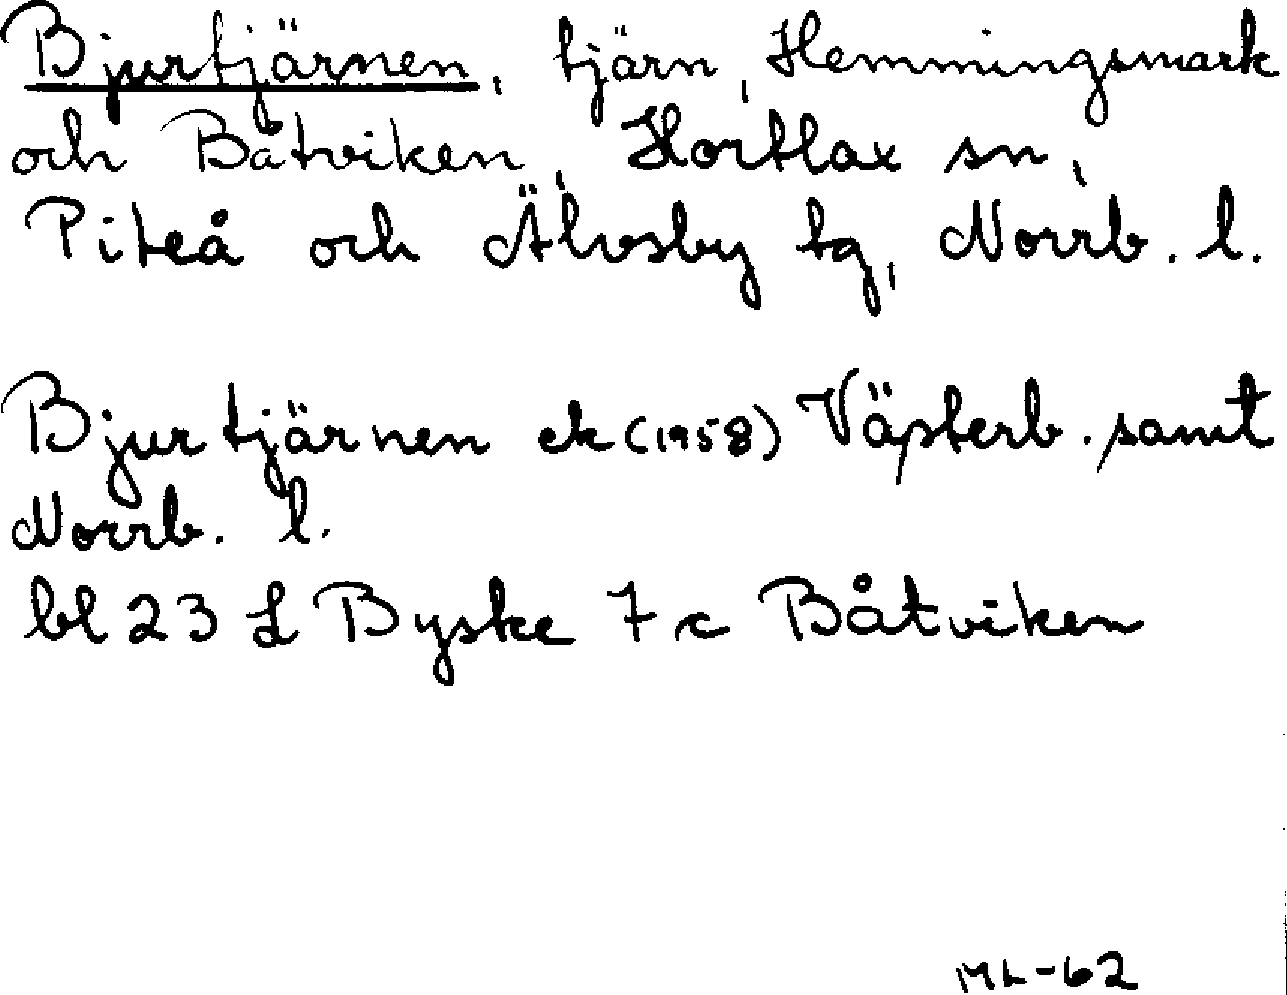 Bjurtjärnen, tjärn, Hemmingsmark
och Båtviken, Hortlax sn,
Piteå och Älvsby tg, Norrb. l.
Bjurtjärnen ek (1958) Västerb. samt
Norrb. l.
bl 23 L Byske 7 c Båtviken
ML-62